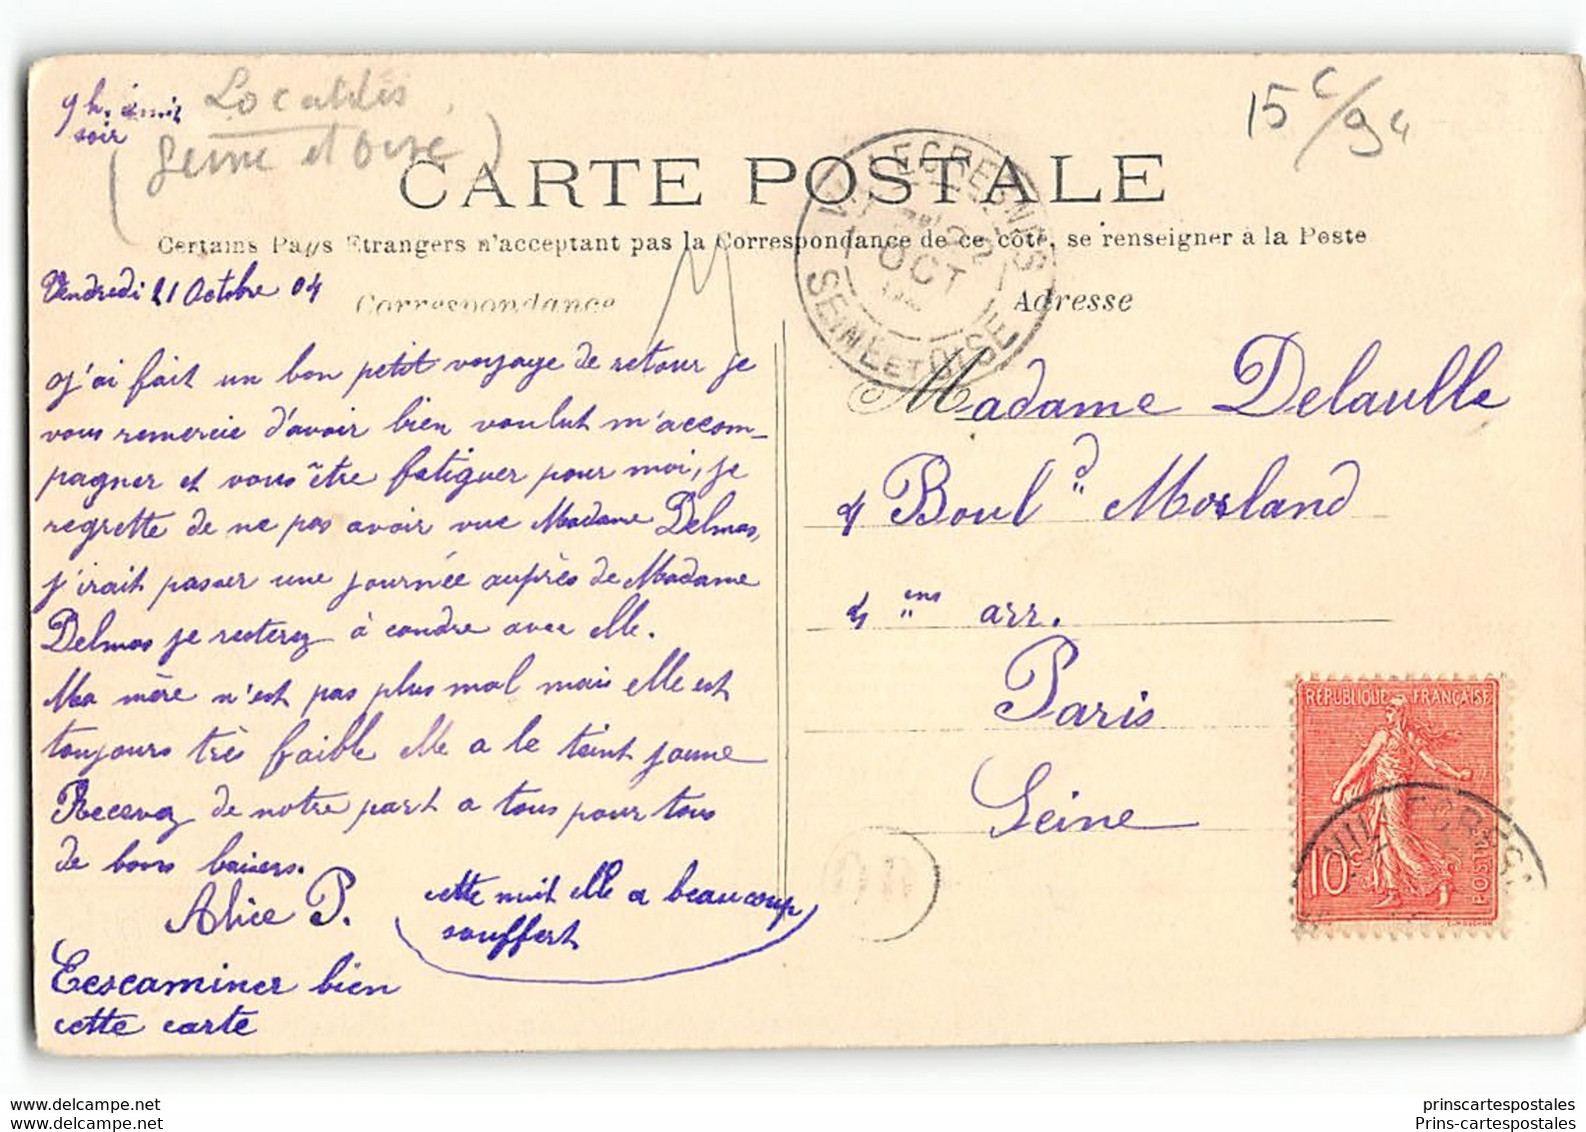 9 h. soir
Localités
(Seine et Oise)
15 c/94
CARTE POSTALE
Certains Pays Etrangers n'acceptant pas la Correspondance de ce côté, se renseigner à la Poste
VILLECRESNES
22
OCT
SEINE ET OISE
Vendredi 21 Octobre 04
Correspondance
J'ai fait un bon petit voyage de retour je
vous remercie d'avoir bien voulut m'accom-
pagner et vous être fatiguer pour moi, je
regrette de ne pas avoir vue Madame Delmas,
j'irait passer une journée auprès de Madame
Delmas je resterez à coudre avec elle.
Ma mère n'est pas plus mal mais elle est
toujours très faible elle a le teint jaune
Recevez de notre part a tous pour tous
de bons baisers.
Alice P.
(cette nuit elle a beaucoup
souffert)
Eescaminer bien
cette carte
Adresse
Madame Delaulle
4 Boul.d Morland
4 ens arr.
Paris
Seine
RÉPUBLIQUE FRANÇAISE
10 c
POSTES
prinscartespostales
Prins-cartespostales
prinscartespostales
Prins-cartespostales